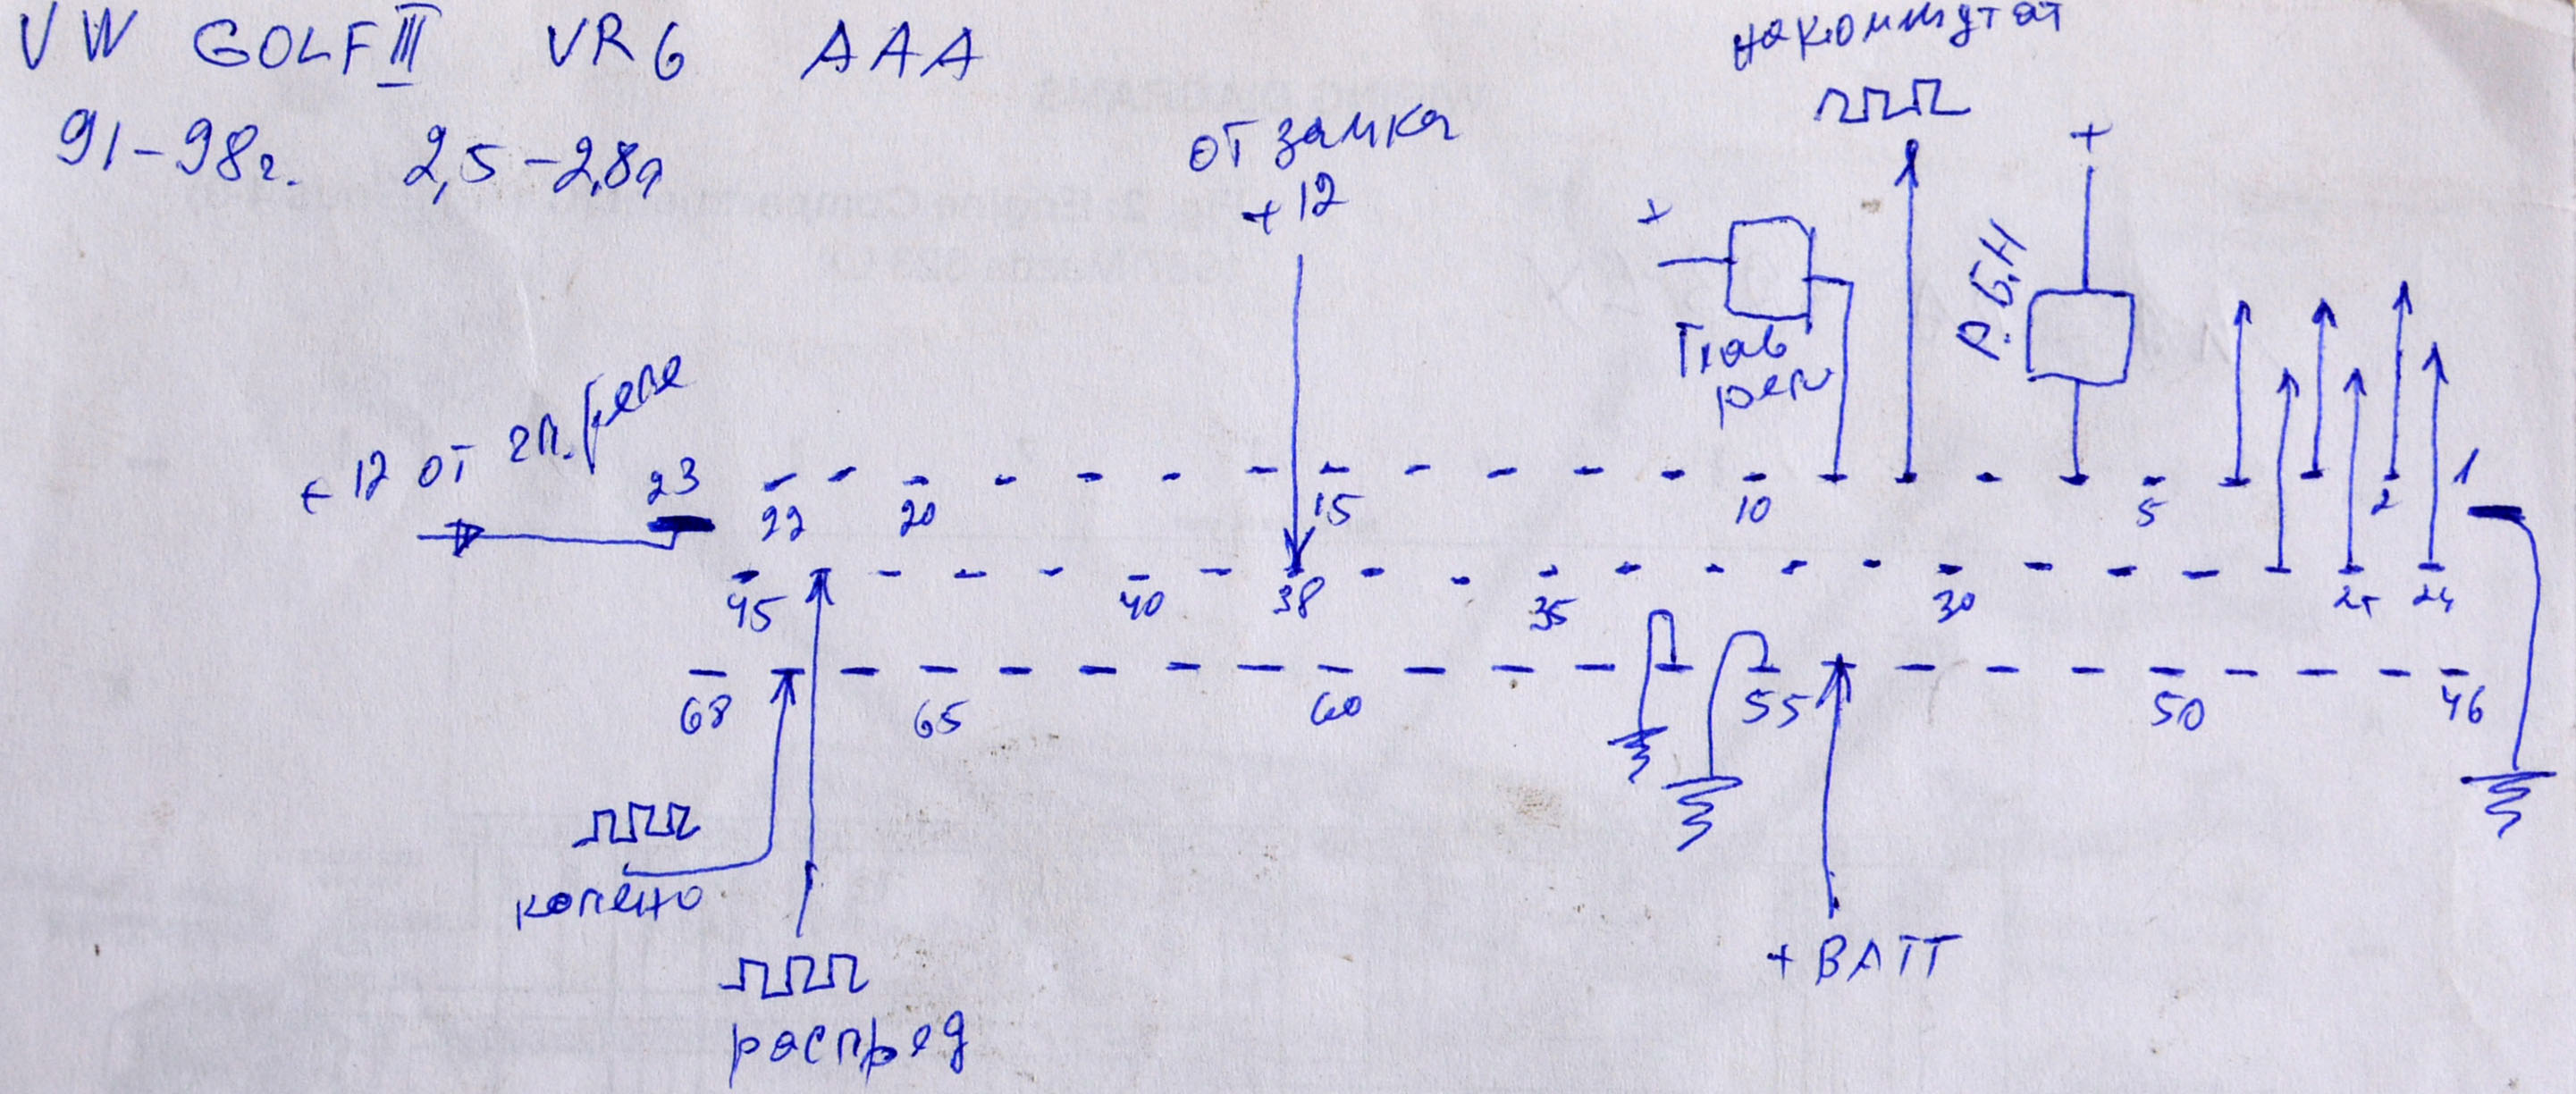 VW GOLF III VR6 AAA
91-98г. 2,5-2,8л
на коммутат
от замка
+12
+
+
Глав
реле
Р.Б.Н
+12 от гл. реле
23
22
20
15
10
5
2
1
45
40
38
35
30
25
24
68
65
60
55
50
46
колено
+ BATT
распред